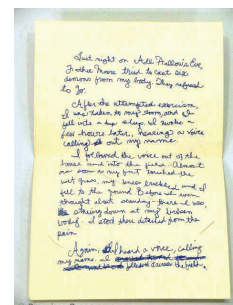 Last night on All Hallow's Eve
Father Moore tried to cast six
demons from my body. They refused
to go.
After the attempted exorcism,
I was taken to my room, and I
fell into a deep sleep. I awoke a
few hours later, hearing a voice
calling out my name.
I followed the voice out of the
house and into the field. Almost
as soon as my feet touched the
wet grass, my knees buckled and I
fell to the ground. Before I even
thought about standing there I was
staring down at my broken
body. I stood there detached from the
pain
Again, I heard a voice, calling
my name. I
followed it across the field.